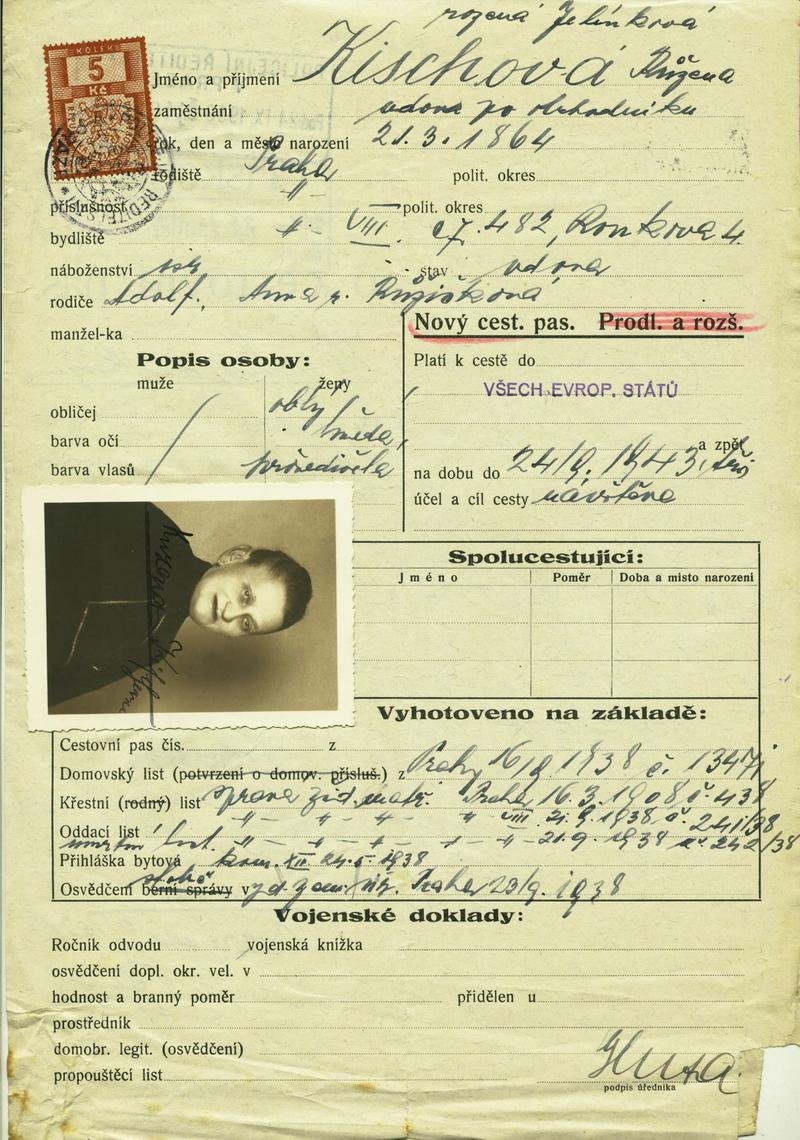 rozená Jelínková
KOLEK
5
Kč
Jméno a příjmení Kischová Růžena
zaměstnání vdova po obchodníku
rok, den a město narození 21.3.1864
rodiště Praha polit. okres
příslušnost " polit. okres
bydliště " VIII. čp. 482, 4
náboženství isr stav vdova
rodiče Adolf, Anna r. Růžičková
manžel-ka
Nový cest. pas. Prodl. a rozš.
Popis osoby:
muže ženy
Platí k cestě do
VŠECH EVROP. STÁTŮ
obličej oblý
barva očí hnědá
barva vlasů prošedivělá
a zpět
na dobu do 24/9. 1943,
účel a cíl cesty návštěva
Spolucestující:
Jméno Poměr Doba a místo narození
Vyhotoveno na základě:
Cestovní pas čís. z
Domovský list (potvrzení o domov. přísluš.) z Prahy 16/9 1938 č. 1347
Křestní (rodný) list zpráva žid. matr. Praha 16.3.1908 č. 438
" " " " VIII. 21.9.1938 č. 241/38
Oddací list
úmrtní list " " " " " 21.9.1938 č. 242/38
Přihláška bytová kom. XII. 24.5.1938
Osvědčení berní správy v Praha 23/9. 1938
Vojenské doklady:
Ročník odvodu vojenská knížka
osvědčení dopl. okr. vel. v
hodnost a branný poměr přidělen u
prostředník
domobr. legit. (osvědčení)
propouštěcí list
podpis úředníka